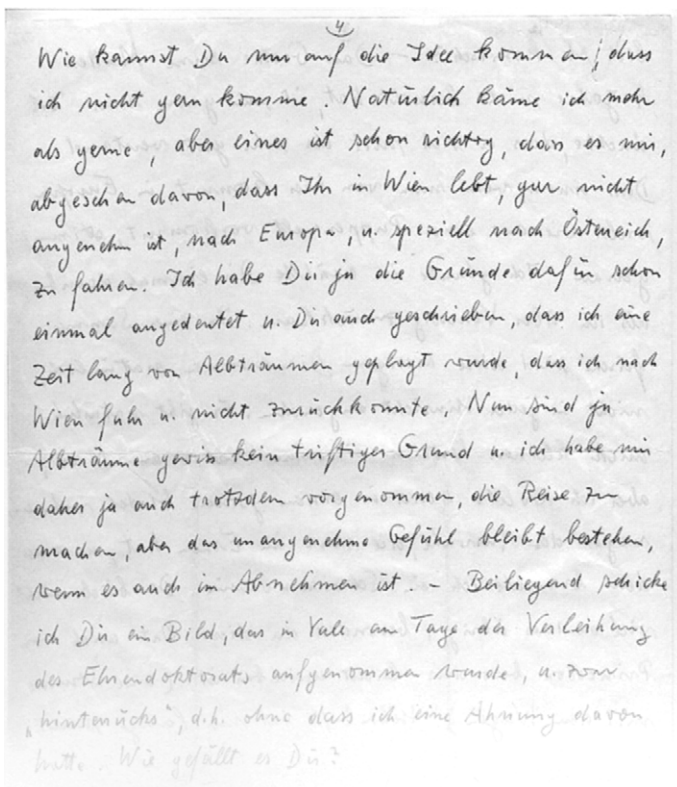 4
Wie kannst Du nur auf die Idee kommen, dass
ich nicht gern komme. Natürlich käme ich mehr
als gerne, aber eines ist schon richtig, dass es mir,
abgesehen davon, dass Ihr in Wien lebt, gar nicht
angenehm ist, nach Europa, u. speziell nach Österreich,
zu fahren. Ich habe Dir ja die Gründe dafür schon
einmal angedeutet u. Dir auch geschrieben, dass ich eine
Zeit lang von Albträumen geplagt wurde, dass ich nach
Wien fuhr u. nicht zurückkonnte. Nun sind ja
Albträume gewiss kein triftiger Grund u. ich habe mir
daher ja auch trotzdem vorgenommen, die Reise zu
machen, aber das unangenehme Gefühl bleibt bestehen,
wenn es auch im Abnehmen ist. – Beiliegend schicke
ich Dir ein Bild, das in Yale am Tage der Verleihung
des Ehrendoktorats aufgenommen wurde, u. zwar
„hinterrücks", d.h. ohne dass ich eine Ahnung davon
hatte. Wie gefällt es Dir?